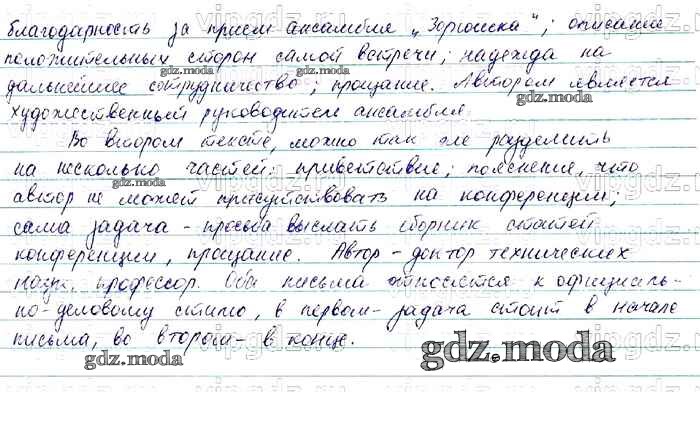 благодарность за прием ансамбля „Зорюшка“; описание
положительных сторон самой встречи; надежда на
дальнейшее сотрудничество; прощание. Автором является
художественный руководитель ансамбля.
Во втором тексте, можно так же разделить
на несколько частей: приветствие; пояснение, что
автор не может присутствовать на конференции;
сама задача - просьба выслать сборник статей
конференции, прощание. Автор - доктор технических
наук, профессор. Оба письма относятся к официаль-
но-деловому стилю, в первом - задача стоит в начале
письма, во втором - в конце.
gdz.moda
gdz.moda
gdz.moda
gdz.moda
gdz.moda
gdz.moda
gdz.moda